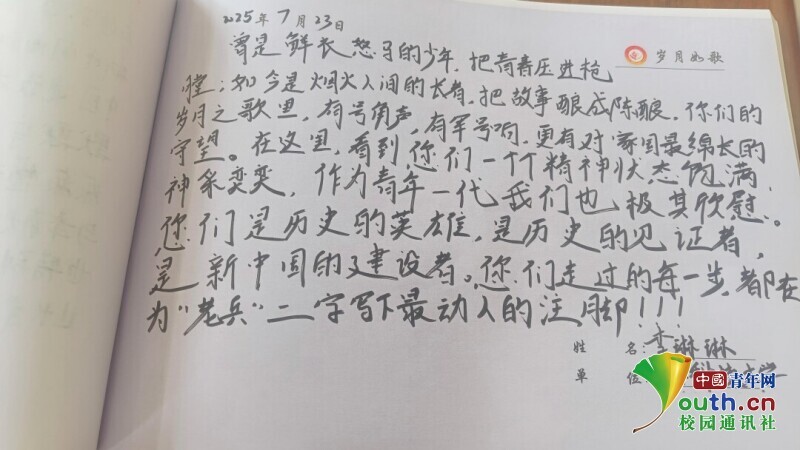 2025年7月23日
岁月如歌
曾是鲜衣怒马的少年,把青春压进枪
膛;如今是烟火人间的长者,把故事酿成陈酿,你们的
岁月之歌里,有号角声,有军号响,更有对家国最绵长的
守望。在这里,看到您们一个个精神状态饱满,
神采奕奕,作为青年一代我们也极其欣慰。
您们是历史的英雄,是历史的见证者,
是新中国的建设者。您们走过的每一步,都在
为“老兵”二字写下最动人的注脚!!!
姓名:李琳琳
单位
中国青年网
youth.cn
校园通讯社